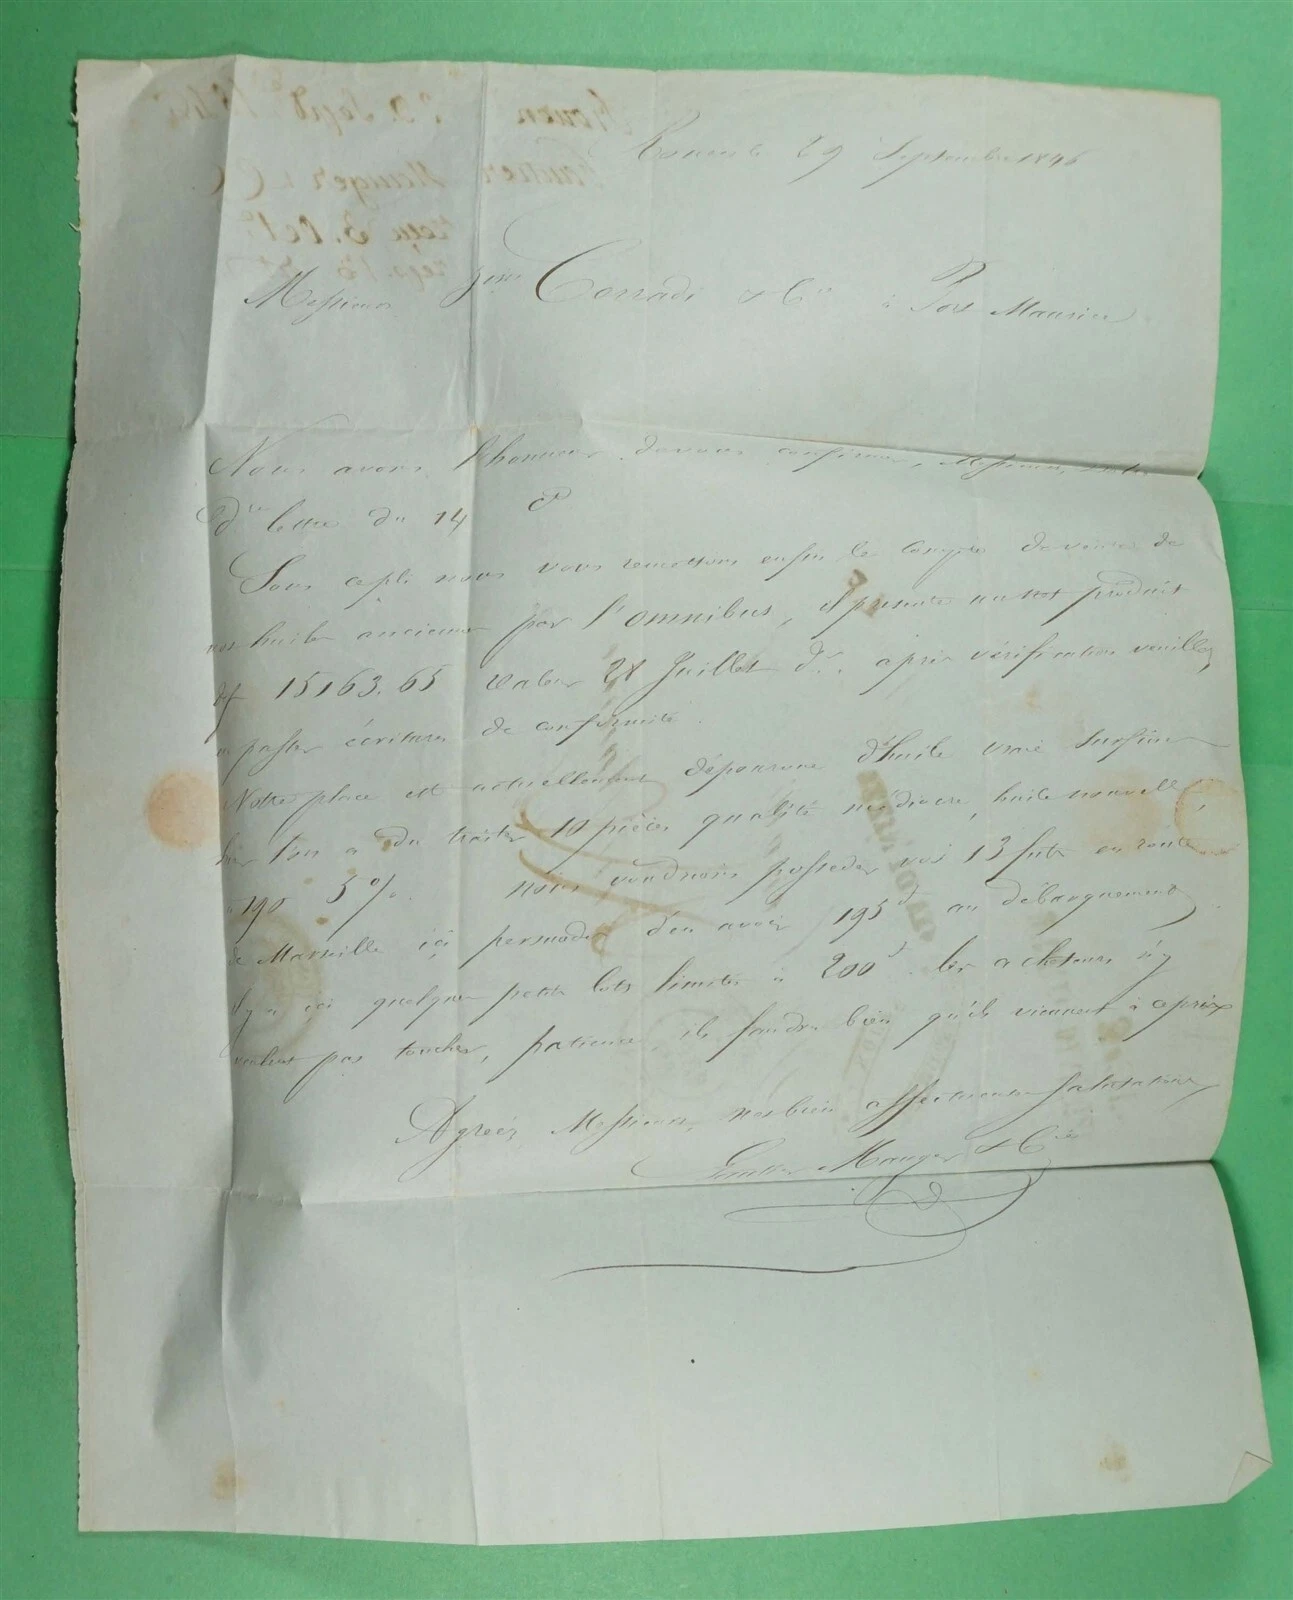 Rouen le 29 Septembre 1846
Messieurs Corradi & Cie à Port Maurice
Nous avons l'honneur de vous confirmer, Messieurs, notre
dre lettre du 14 ct
Sous ce pli nous vous remettons enfin le compte de vente de
vos huiles anciennes par l'omnibus, il présente un net produit
de f 15163.65 valeur 28 Juillet dr. après vérification veuillez
en passer écritures de conformité.
Notre place est actuellement dépourvue d'huile vraie surfine
hier l'on a du traiter 10 pièces qualité médiocre, huile nouvelle,
à 190 5%. nous voudrions posséder vos 13 futs en route
de Marseille ici persuadés d'en avoir 195 f au débarquement
il y a ici quelques petits lots limités à 200 f. les acheteurs n'y
veulent pas toucher, patience ils faudra bien qu'ils viennent à ce prix
Agréez Messieurs, nos bien affectueuses salutations
Mauger & Cie